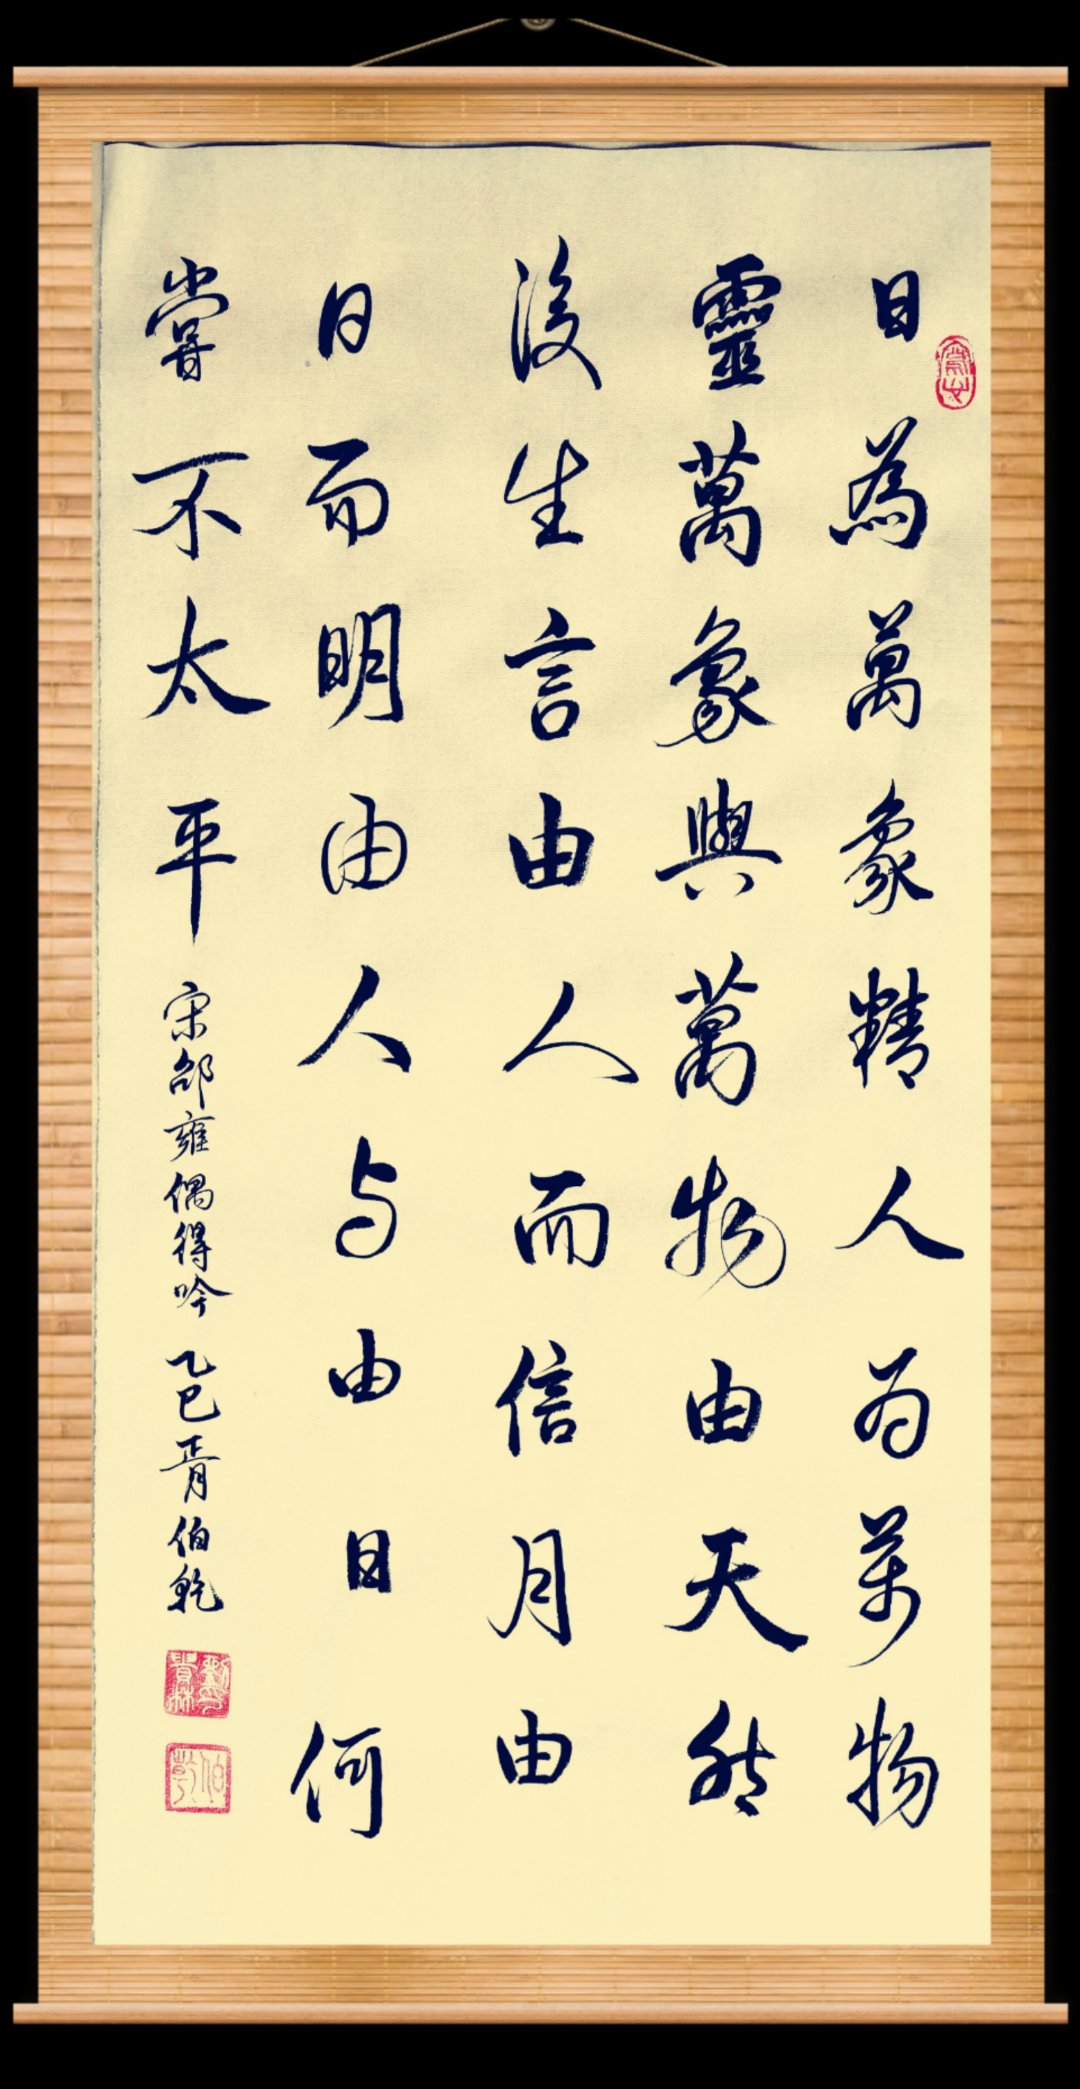 日為萬象精人为萬物
靈萬象與萬物由天然
後生言由人而信月由
日而明由人与由日何
嘗不太平
宋邵雍偶得吟 乙巳 胥伯乾
伯乾